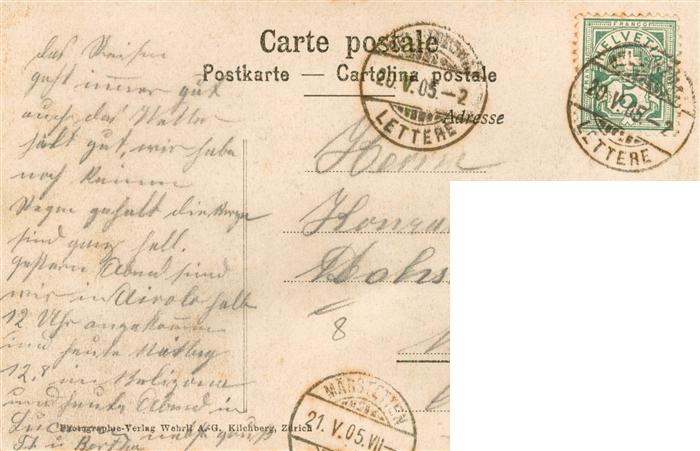 Carte postale
Postkarte — Cartolina postale
Adresse
FRANCO
HELVETIA
5
20.V.05.–2
LETTERE
20.V.05.
LETTERE
das Reisen
geht immer gut
auch das Wetter
halt gut, wir habe
noch keinen
Regen gehabt die Berge
sind ganz hell.
gestern Abend sind
wir in Airolo halb
12 Uhr angekommen
und heute Mittag
12.8 in Belizona
und heute Abend in
Herrn
8
MÄRSTETTEN
21.V.05.VII
Photographie-Verlag Wehrli A.-G. Kilchberg, Zürich
u Bertha